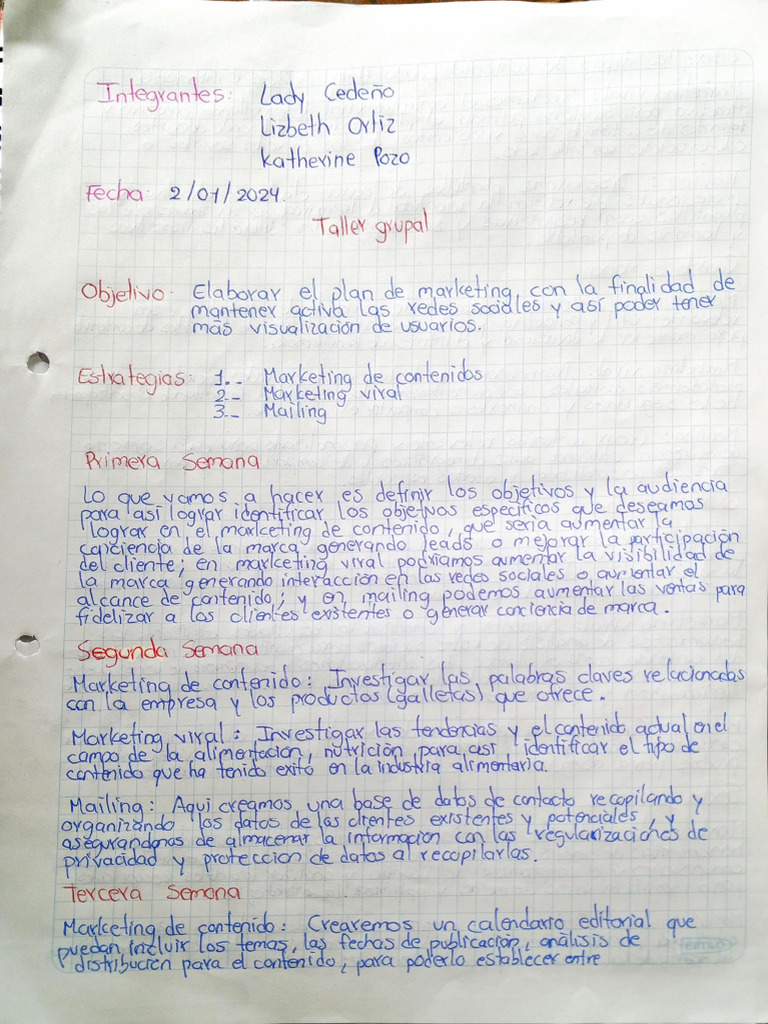 Integrantes: Lady Cedeño
Lizbeth Ortiz
Katherine Pozo
Fecha 2/01/2024.
Taller grupal
Objetivo. Elaborar el plan de marketing, con la finalidad de
mantener activa las redes sociales y así poder tener
más visualización de usuarios.
Estrategias: 1.- Marketing de contenidos
2.- Marketing viral
3.- Mailing
Primera Semana
Lo que vamos a hacer es definir los objetivos y la audiencia
para así lograr identificar los objetivos específicos que deseamos
lograr en el marketing de contenido, que sería aumentar la
conciencia de la marca, generando leads o mejorar la participación
del cliente; en marketing viral podríamos aumentar la visibilidad de
la marca generando interacción en las redes sociales o aumentar el
alcance de contenido; y en mailing podemos aumentar las ventas para
fidelizar a los clientes existentes o generar conciencia de marca.
Segunda Semana
Marketing de contenido: Investigar las palabras claves relacionadas
con la empresa y los productos (galletas) que ofrece.
Marketing viral: Investigar las tendencias y el contenido actual en el
campo de la alimentación, nutrición para así identificar el tipo de
contenido que ha tenido exitó en la industria alimentaria.
Mailing: Aqui creamos una base de datos de contacto recopilando y
organizando los datos de los clientes existentes y potenciales, y
asegurandonos de almacenar la información con las regularizaciones de
privacidad y protección de datos al recopilarlas.
Tercera Semana
Marketing de contenido: Crearemos un calendario editorial que
puedan incluir los temas, las fechas de publicación, análisis de
distribución para el contenido, para poderlo establecer entre